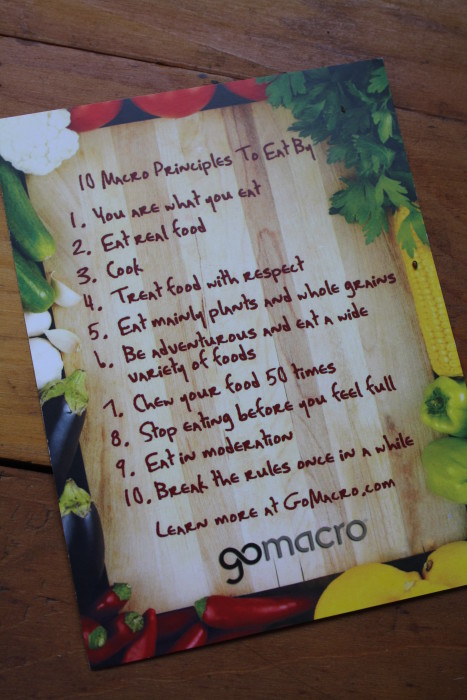 10 Macro Principles To Eat By
1. You are what you eat
2. Eat real food
3. Cook
4. Treat food with respect
5. Eat mainly plants and whole grains
6. Be adventurous and eat a wide
variety of foods
7. Chew your food 50 times
8. Stop eating before you feel full
9. Eat in moderation
10. Break the rules once in a while
Learn more at GoMacro.com
gomacro